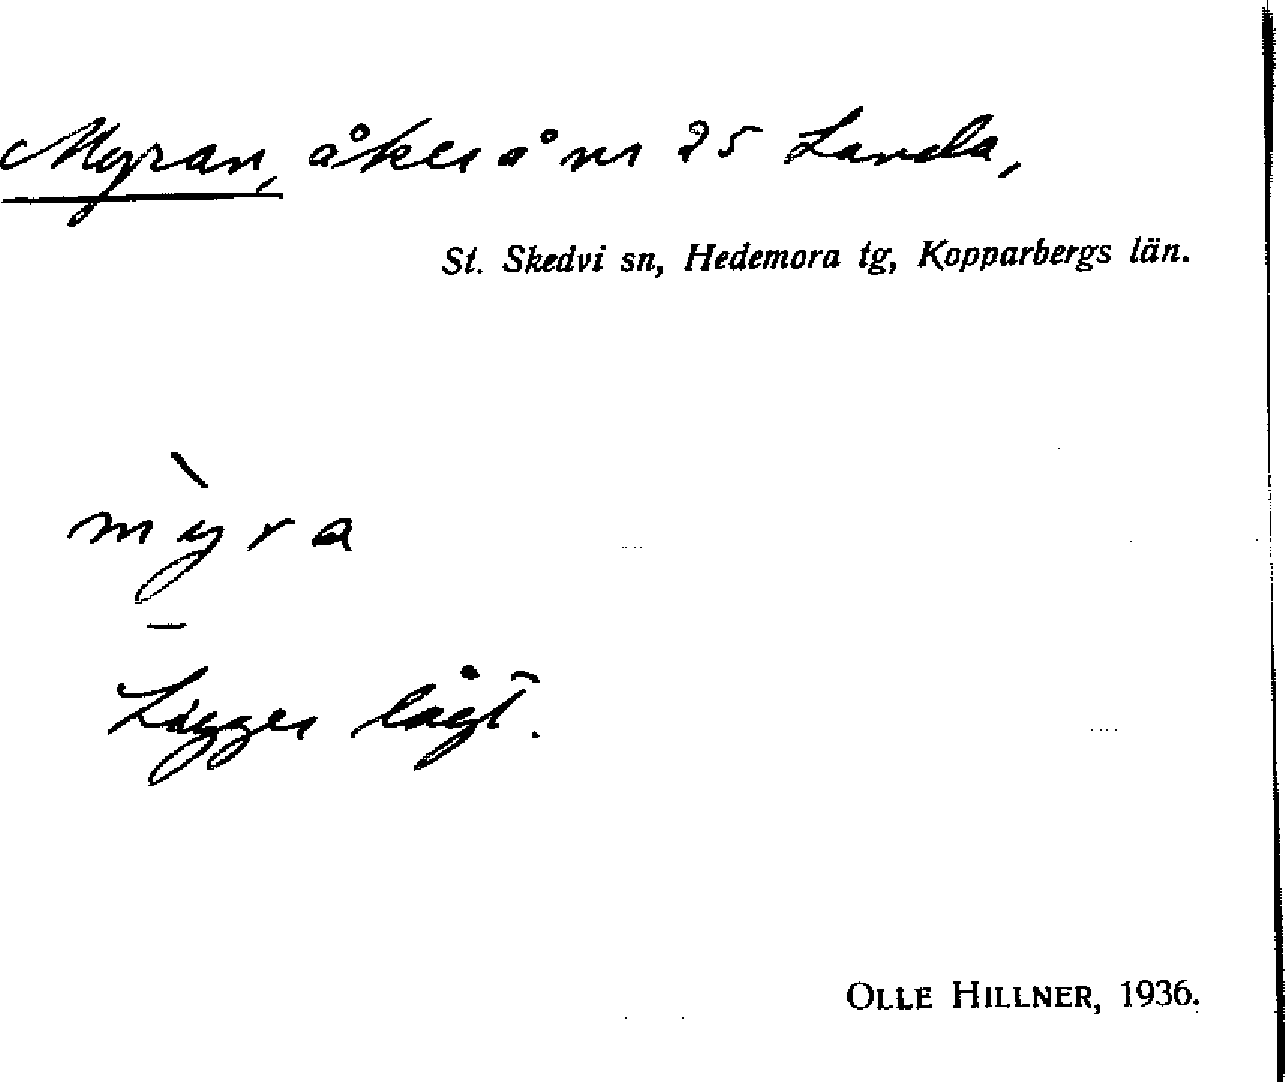 Myran, åker å nr 25 Landa,
St. Skedvi sn, Hedemora tg, Kopparbergs län.
mỳra
Ligger lågt.
OLLE HILLNER, 1936.